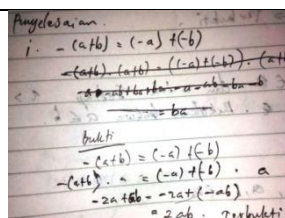 Penyelesaian.
i. -(a+b) = (-a) + (-b)
-(a+b) . (a+b) = ((-a) + (-b)) . (a+
= ba
bukti
-(a+b) = (-a) + (-b)
-(a+b) . a = (-a) + (-b) . a
-2a + ab = -2a + (-ab)
= 2ab . Terbukti